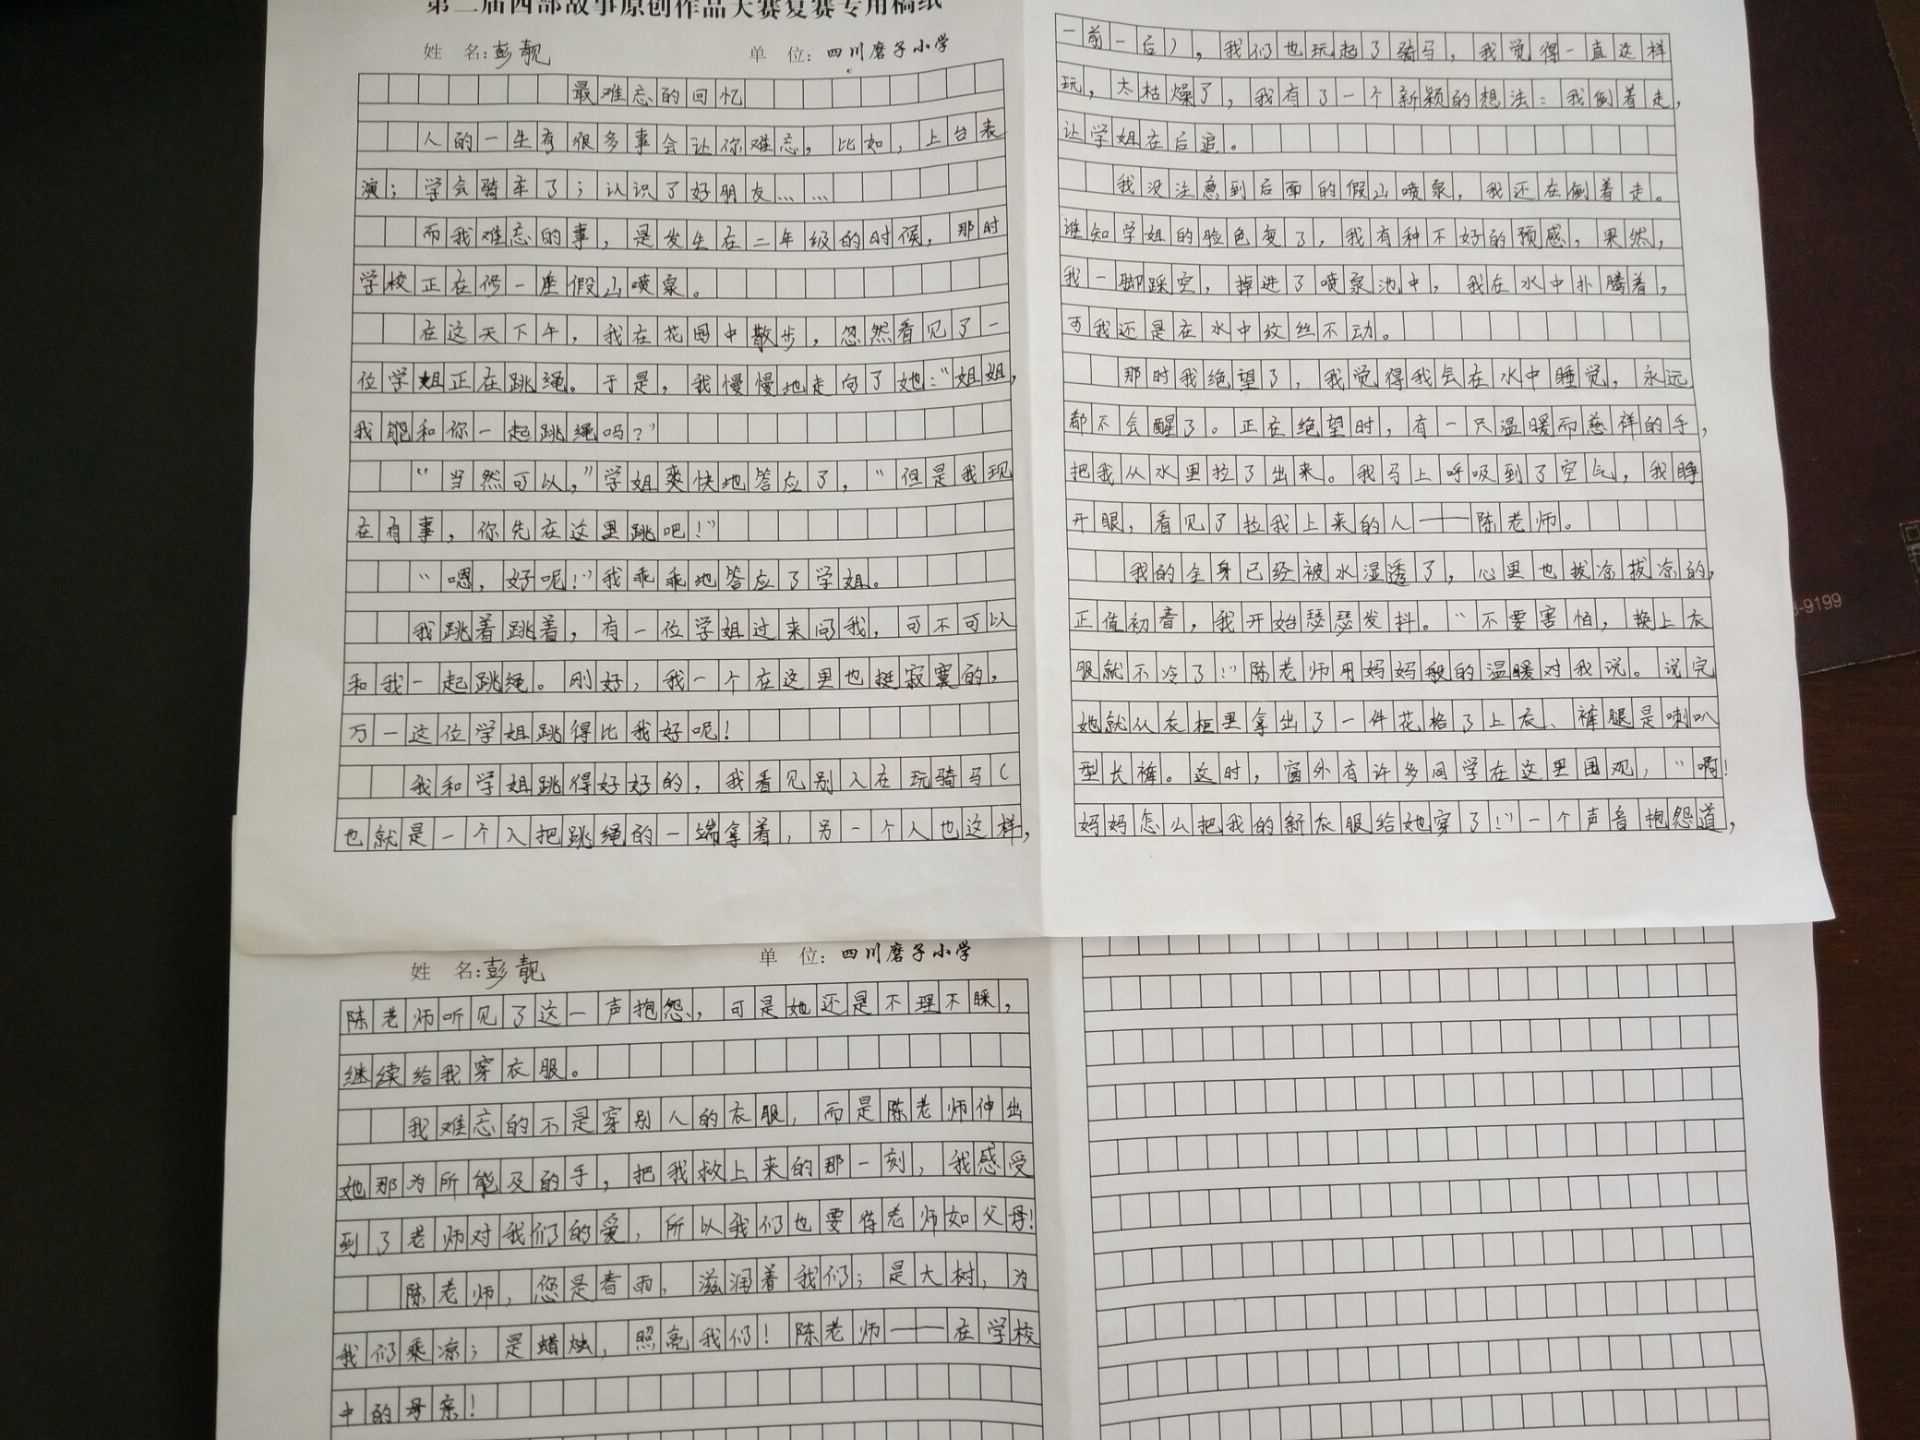 第二届西部故事原创作品大赛复赛专用稿纸
姓 名:彭靓 单 位:四川磨子小学
最难忘的回忆
人的一生有很多事会让你难忘,比如,上台表
演;学会骑车了;认识了好朋友……
而我难忘的事,是发生在二年级的时候,那时
学校正在修一座假山喷泉。
在这天下午,我在花园中散步,忽然看见了一
位学姐正在跳绳。于是,我慢慢地走向了她:“姐姐,
我能和你一起跳绳吗?”
“当然可以,”学姐爽快地答应了,“但是我现
在有事,你先在这里跳吧!”
“嗯,好呢!”我乖乖地答应了学姐。
我跳着跳着,有一位学姐过来问我,可不可以
和我一起跳绳。刚好,我一个在这里也挺寂寞的,
万一这位学姐跳得比我好呢!
我和学姐跳得好好的,我看见别人在玩骑马(
也就是一个人把跳绳的一端拿着,另一个人也这样,
一前一后),我们也玩起了骑马,我觉得一直这样
玩,太枯燥了,我有了一个新颖的想法:我倒着走,
让学姐在后追。
我没注意到后面的假山喷泉,我还在倒着走。
谁知学姐的脸色变了,我有种不好的预感,果然,
我一脚踩空,掉进了喷泉池中,我在水中扑腾着,
可我还是在水中纹丝不动。
那时我绝望了,我觉得我会在水中睡觉,永远
都不会醒了。正在绝望时,有一只温暖而慈祥的手,
把我从水里拉了出来。我马上呼吸到了空气,我睁
开眼,看见了拉我上来的人——陈老师。
我的全身已经被水湿透了,心里也拔凉拔凉的,
正值初春,我开始瑟瑟发抖。“不要害怕,换上衣
服就不冷了!”陈老师用妈妈般的温暖对我说。说完
她就从衣柜里拿出了一件花格了上衣、裤腿是喇叭
型长裤。这时,窗外有许多同学在这里围观,“啊!
妈妈怎么把我的新衣服给她穿了!”一个声音抱怨道,
姓 名:彭靓 单 位:四川磨子小学
陈老师听见了这一声抱怨,可是她还是不理不睬,
继续给我穿衣服。
我难忘的不是穿别人的衣服,而是陈老师伸出
她那为所能及的手,把我救上来的那一刻,我感受
到了老师对我们的爱,所以我们也要待老师如父母!
陈老师,您是春雨,滋润着我们;是大树,为
我们乘凉;是蜡烛,照亮我们!陈老师——在学校
中的母亲!
8-9199